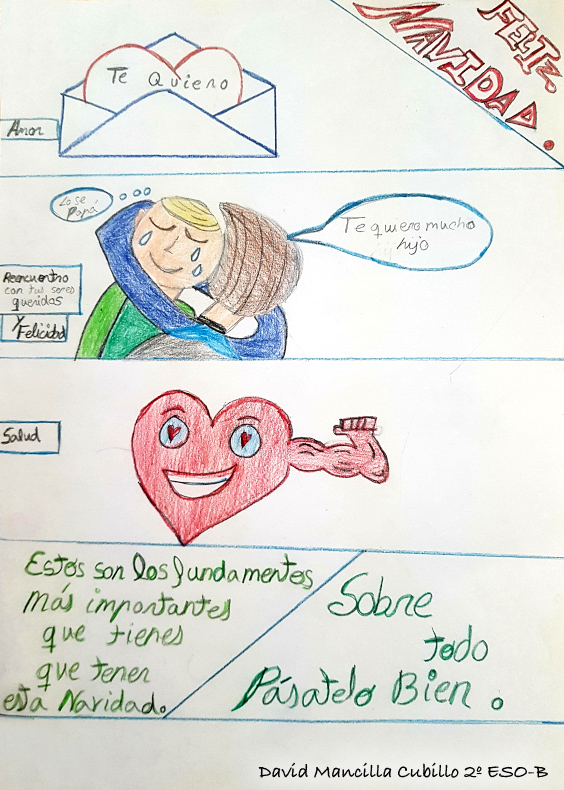 FELIZ
NAVIDAD.
Te Quiero
Amor
Lo se
Papá
Te quiero mucho
hijo
Reencuentro
con tus seres
queridas
y Felicidad
Salud
Estos son los fundamentos
más importantes
que tienes
que tener
esta Navidad.
Sobre
todo
Pásatelo Bien.
David Mancilla Cubillo 2º ESO-B